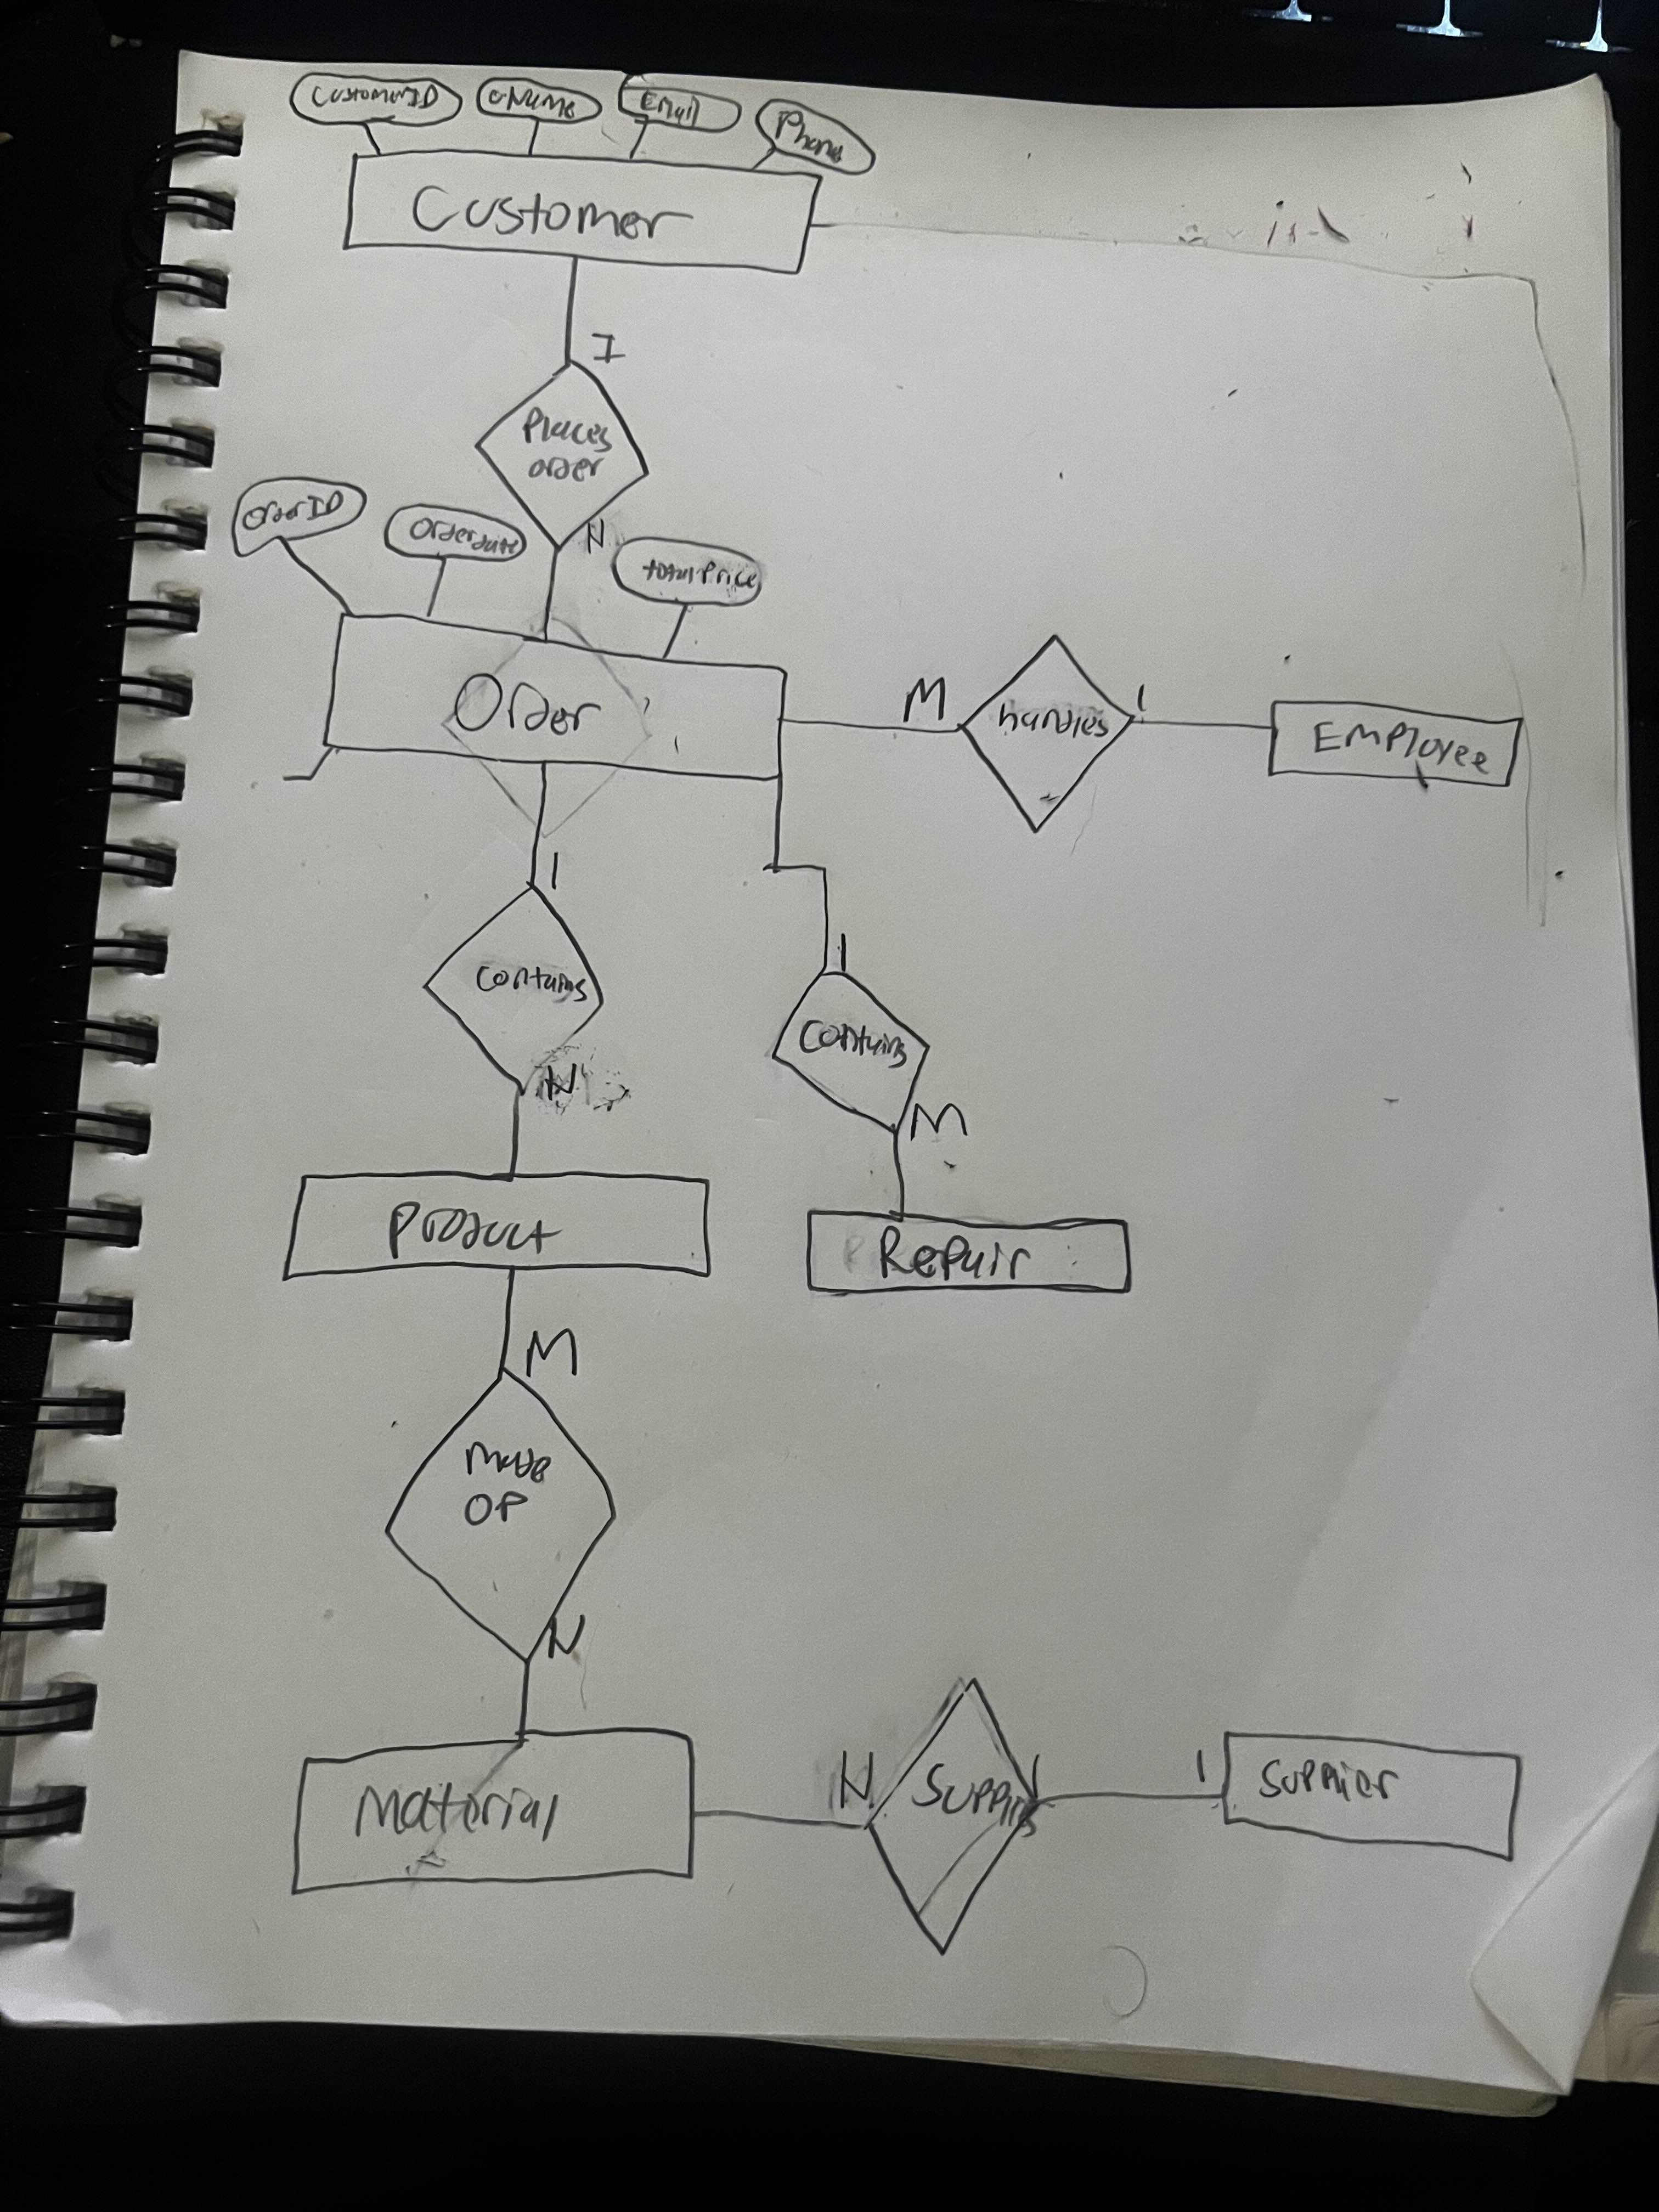 CustomerID
CName
Email
Phone
Customer
1
Places
order
N
OrderID
Orderdate
totalPrice
Order
M
handles
1
Employee
1
Contains
N
1
Contains
M
Product
Repair
M
Made
OF
N
Material
N
Supplies
1
Supplier